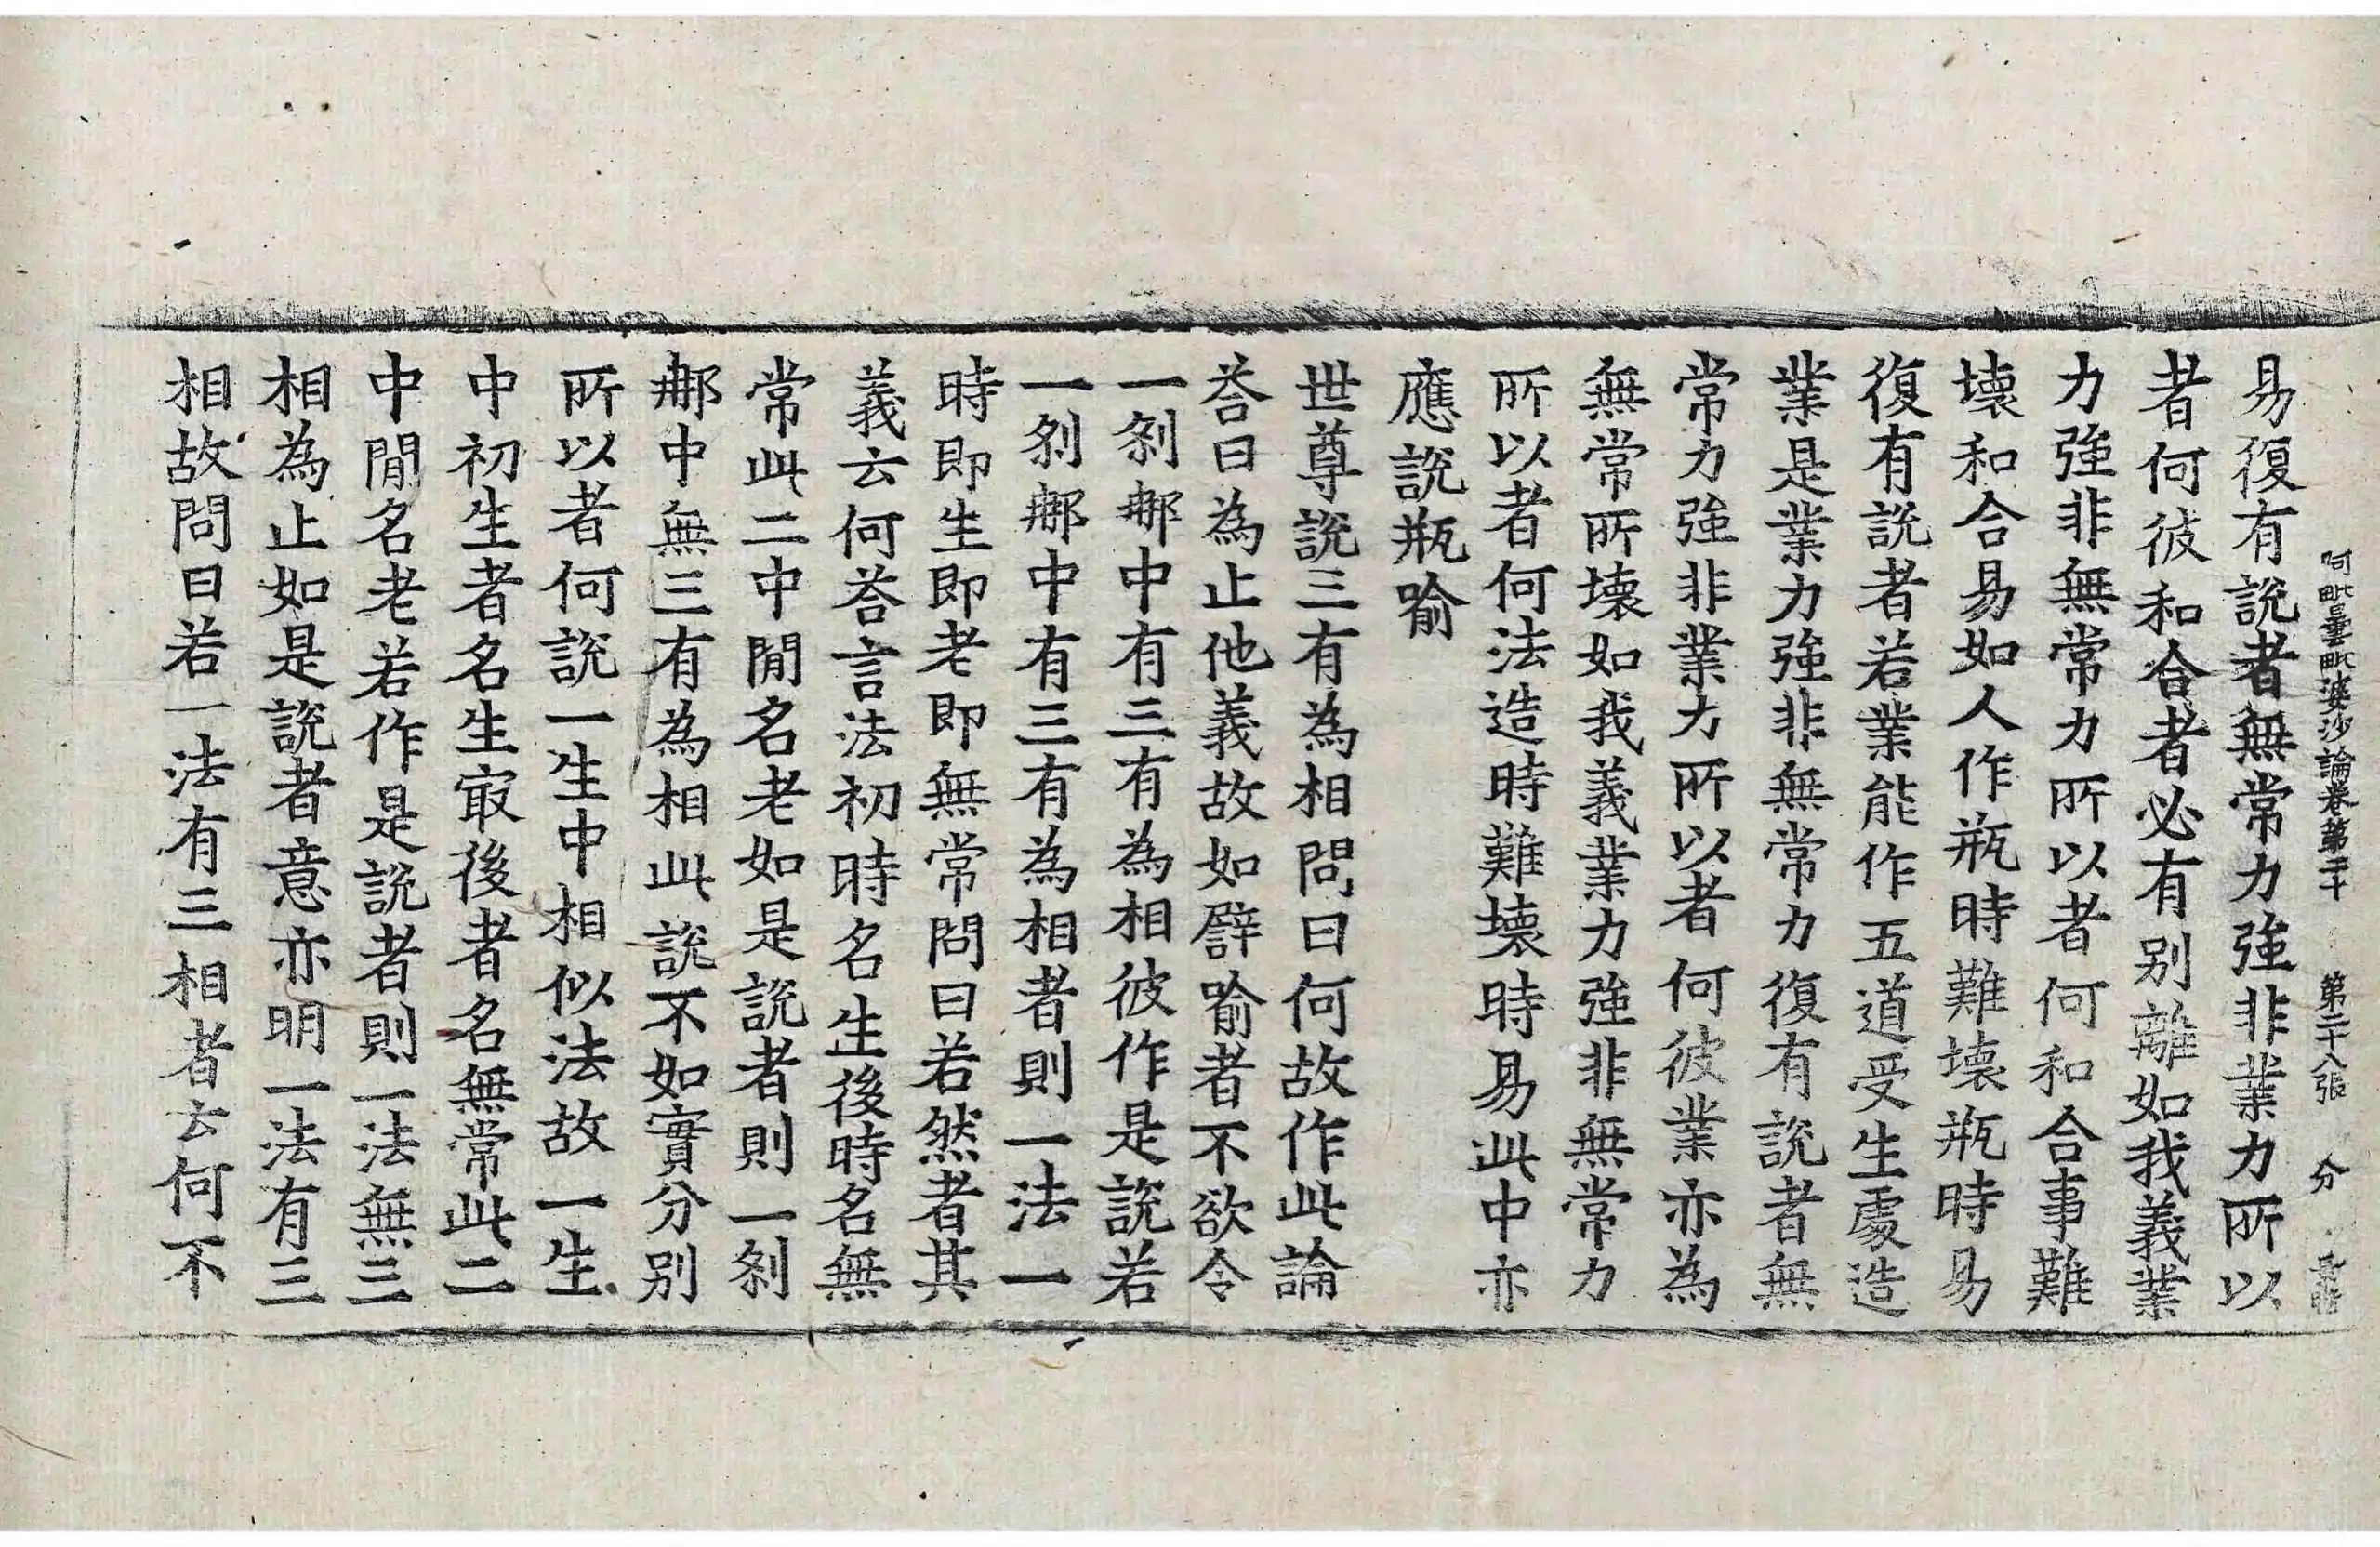 阿毗曇毗婆沙論卷第二十　第二十八張　分
易復有說者無常力強非業力所以
者何彼和合者必有別離如我義業
力強非無常力所以者何和合事難
壞和合易如人作瓶時難壞瓶時易
復有說者若業能作五道受生處造
業是業力強非無常力復有說者無
常力強非業力所以者何彼業亦為
無常所壞如我義業力強非無常力
所以者何法造時難壞時易此中亦
應說瓶喻
世尊說三有為相問曰何故作此論
荅曰為止他義故如譬喻者不欲令
一剎那中有三有為相彼作是說若
一剎那中有三有為相者則一法一
時即生即老即無常問曰若然者其
義云何荅言法初時名生後時名無
常此二中閒名老如是說者則一剎
那中無三有為相此說不如實分別
所以者何說一生中相似法故一生
中初生者名生㝡後者名無常此二
中閒名老若作是說者則一法無三
相為止如是說者意亦明一法有三
相故問曰若一法有三相者云何不